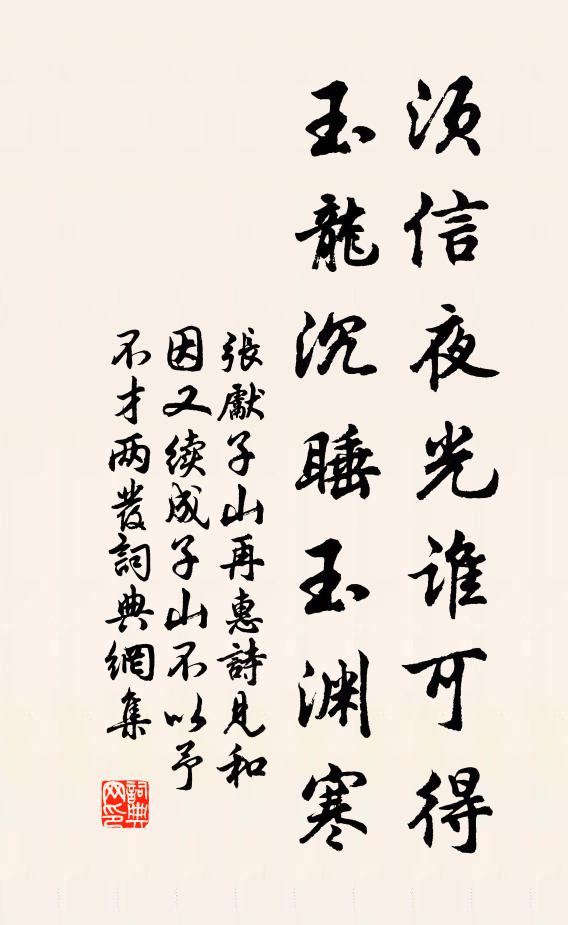 须信夜光谁可得
玉龍沉睡玉渊寒
張獻子山再惠詩見和
因又续成子山不以予
不才两發詞典網集
詞典
网印